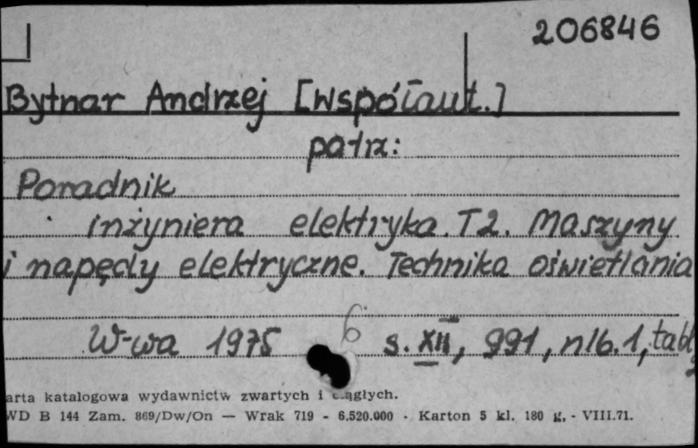 206846
Bytnar Andrzej [współaut.]
patrz:
Poradnik
inżyniera elektryka. T2. Maszyny
i napędy elektryczne. Technika oświetlania
W-wa 1975 6 s. XII, 991, nlb. 1, tabl
arta katalogowa wydawnictw zwartych i ciągłych.
WD B 144 Zam. 869/Dw/On — Wrak 719 - 6.520.000 - Karton 5 kl. 180 g. - VIII.71.